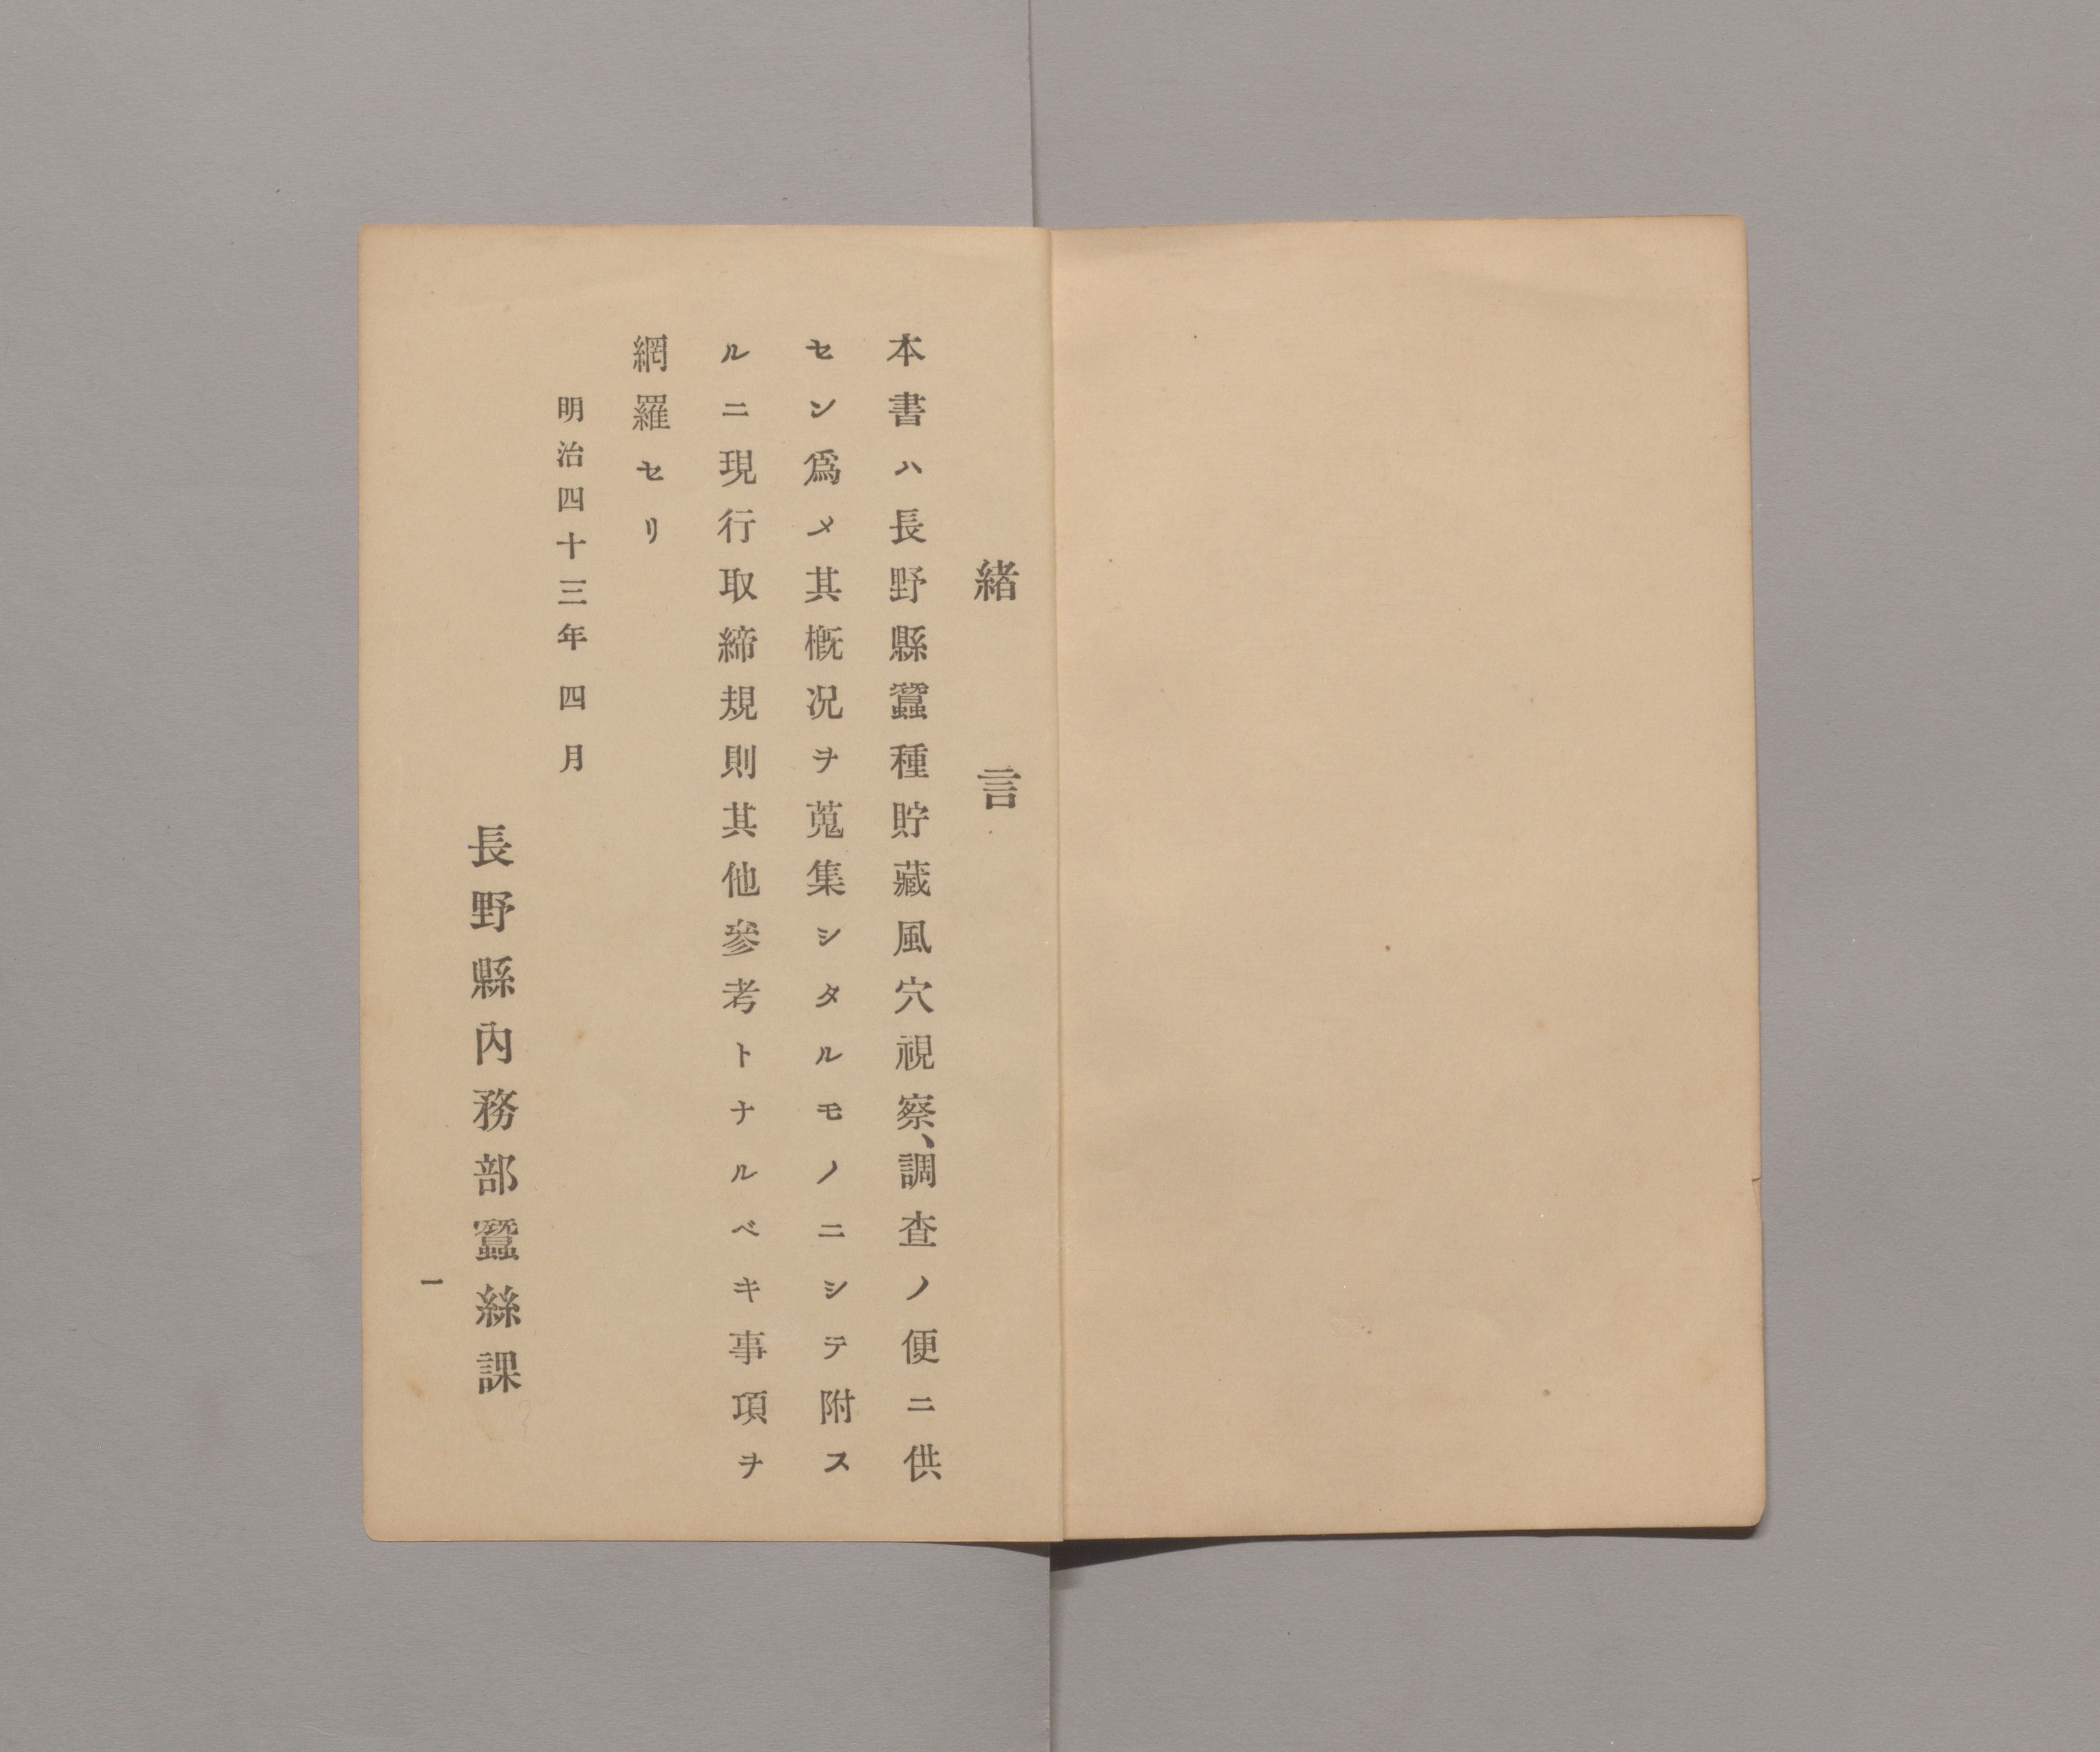 緒言
本書ハ長野縣蠶種貯藏風穴視察、調査ノ便ニ供
セン爲メ其概況ヲ蒐集シタルモノニシテ附ス
ルニ現行取締規則其他參考トナルベキ事項ヲ
網羅セリ
明治四十三年四月
長野縣內務部蠶絲課
一